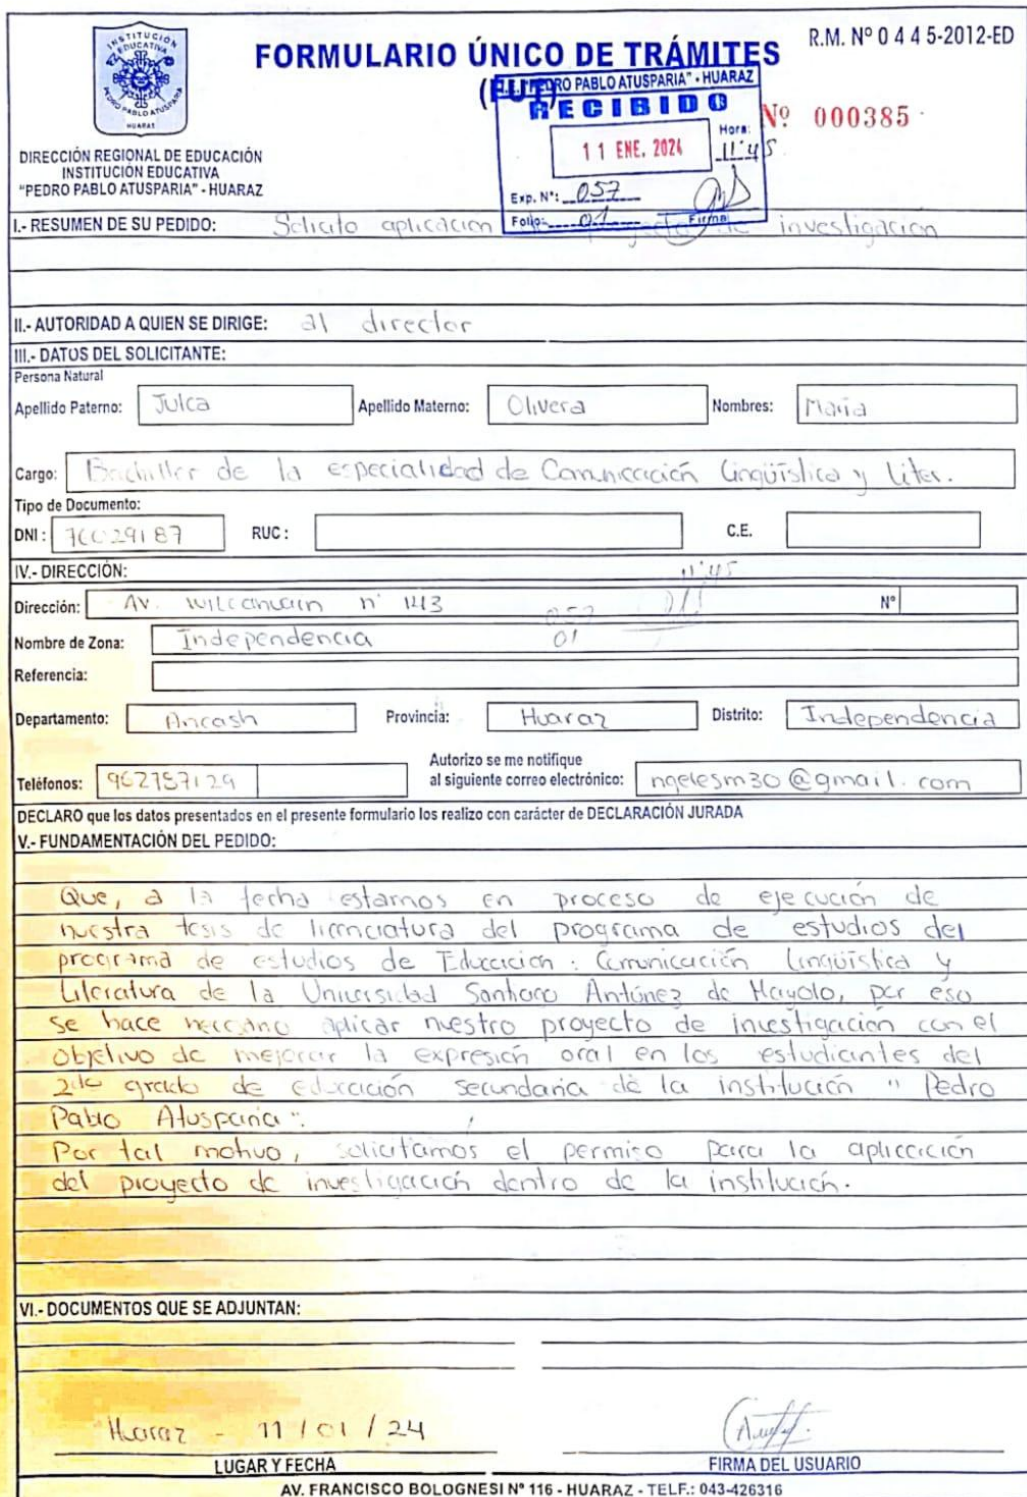 INSTITUCIÓN EDUCATIVA
PEDRO PABLO ATUSPARIA
HUARAZ
FORMULARIO ÚNICO DE TRÁMITES
(FUT)
R.M. Nº 0 4 4 5-2012-ED
Nº 000385
"PEDRO PABLO ATUSPARIA" - HUARAZ
RECIBIDO
11 ENE. 2024
Hora: 11:45
Exp. N°: 057
Folio: 01 Firma
DIRECCIÓN REGIONAL DE EDUCACIÓN
INSTITUCIÓN EDUCATIVA
"PEDRO PABLO ATUSPARIA" - HUARAZ
I.- RESUMEN DE SU PEDIDO: Solicito aplicación de investigación
II.- AUTORIDAD A QUIEN SE DIRIGE: al director
III.- DATOS DEL SOLICITANTE:
Persona Natural
Apellido Paterno: Julca Apellido Materno: Olivera Nombres: María
Cargo: Bachiller de la especialidad de Comunicación Lingüística y Liter.
Tipo de Documento:
DNI : 76029187 RUC : C.E.
IV.- DIRECCIÓN:
11:45
Dirección: Av. Wilcahuain n° 143 Nº
057
Nombre de Zona: Independencia
01
Referencia:
Departamento: Ancash Provincia: Huaraz Distrito: Independencia
Teléfonos: 962757129 Autorizo se me notifique
al siguiente correo electrónico: ngelesm30@gmail.com
DECLARO que los datos presentados en el presente formulario los realizo con carácter de DECLARACIÓN JURADA
V.- FUNDAMENTACIÓN DEL PEDIDO:
Que, a la fecha estamos en proceso de ejecución de
nuestra tesis de licenciatura del programa de estudios del
programa de estudios de Educación: Comunicación Lingüística y
Literatura de la Universidad Santiago Antúnez de Mayolo, por eso
se hace necesario aplicar nuestro proyecto de investigación con el
objetivo de mejorar la expresión oral en los estudiantes del
2do grado de educación secundaria de la institución "Pedro
Pablo Atusparia".
Por tal motivo, solicitamos el permiso para la aplicación
del proyecto de investigación dentro de la institución.
VI.- DOCUMENTOS QUE SE ADJUNTAN:
Huaraz - 11 / 01 / 24
LUGAR Y FECHA FIRMA DEL USUARIO
AV. FRANCISCO BOLOGNESI Nº 116 - HUARAZ - TELF.: 043-426316